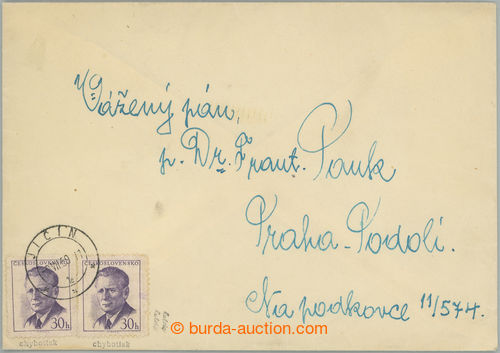 Vážený pán,
p. Dr. Frant. Pank
Praha-Podolí.
Na podkovce 11/574.
JIČÍN
ČESKOSLOVENSKO
ČESKOSLOVENSKO
30h
30h
chybotisk
chybotisk
burda-auction.com